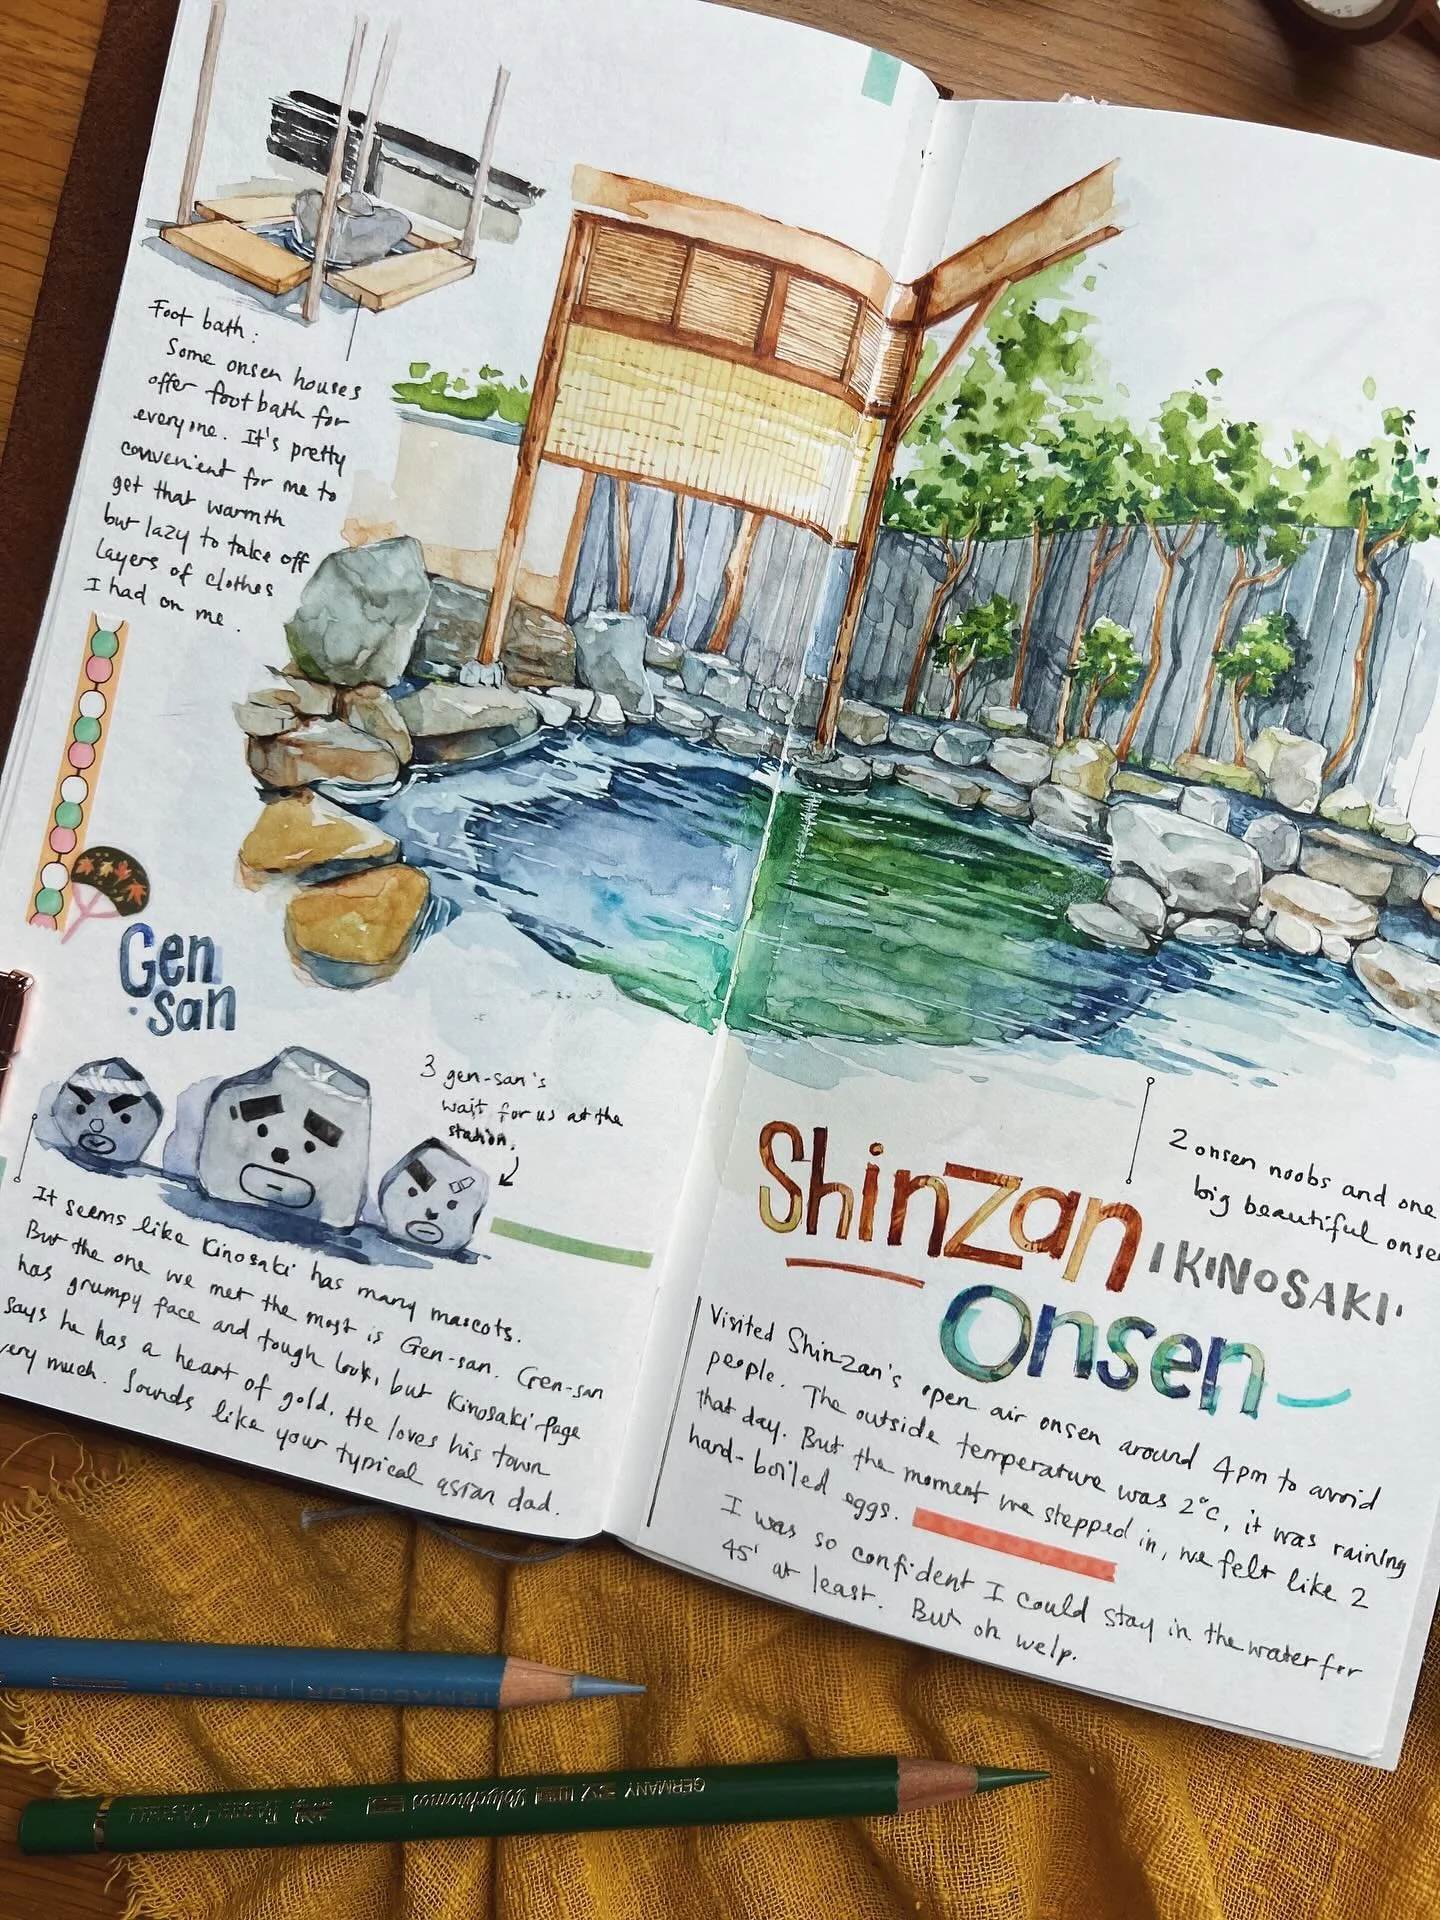 Foot bath :
Some onsen houses
offer foot bath for
everyone. It's pretty
convenient for me to
get that warmth
but lazy to take off
layers of clothes
I had on me.
Gen
san
3 gen-san's
wait for us at the
station.
It seems like Kinosaki has many mascots.
But the one we met the most is Gen-san. Gen-san
has grumpy face and tough look, but Kinosaki page
says he has a heart of gold. He loves his town
very much. Sounds like your typical asian dad.
2 onsen noobs and one
big beautiful onsen
Shinzan
KINOSAKI
Onsen
Visited Shinzan's open air onsen around 4pm to avoid
people. The outside temperature was 2°C, it was raining
that day. But the moment we stepped in, we felt like 2
hard-boiled eggs.
I was so confident I could stay in the water for
45' at least. But oh welp.
PREMIER
GERMANY
Polychromos
Faber-Castell